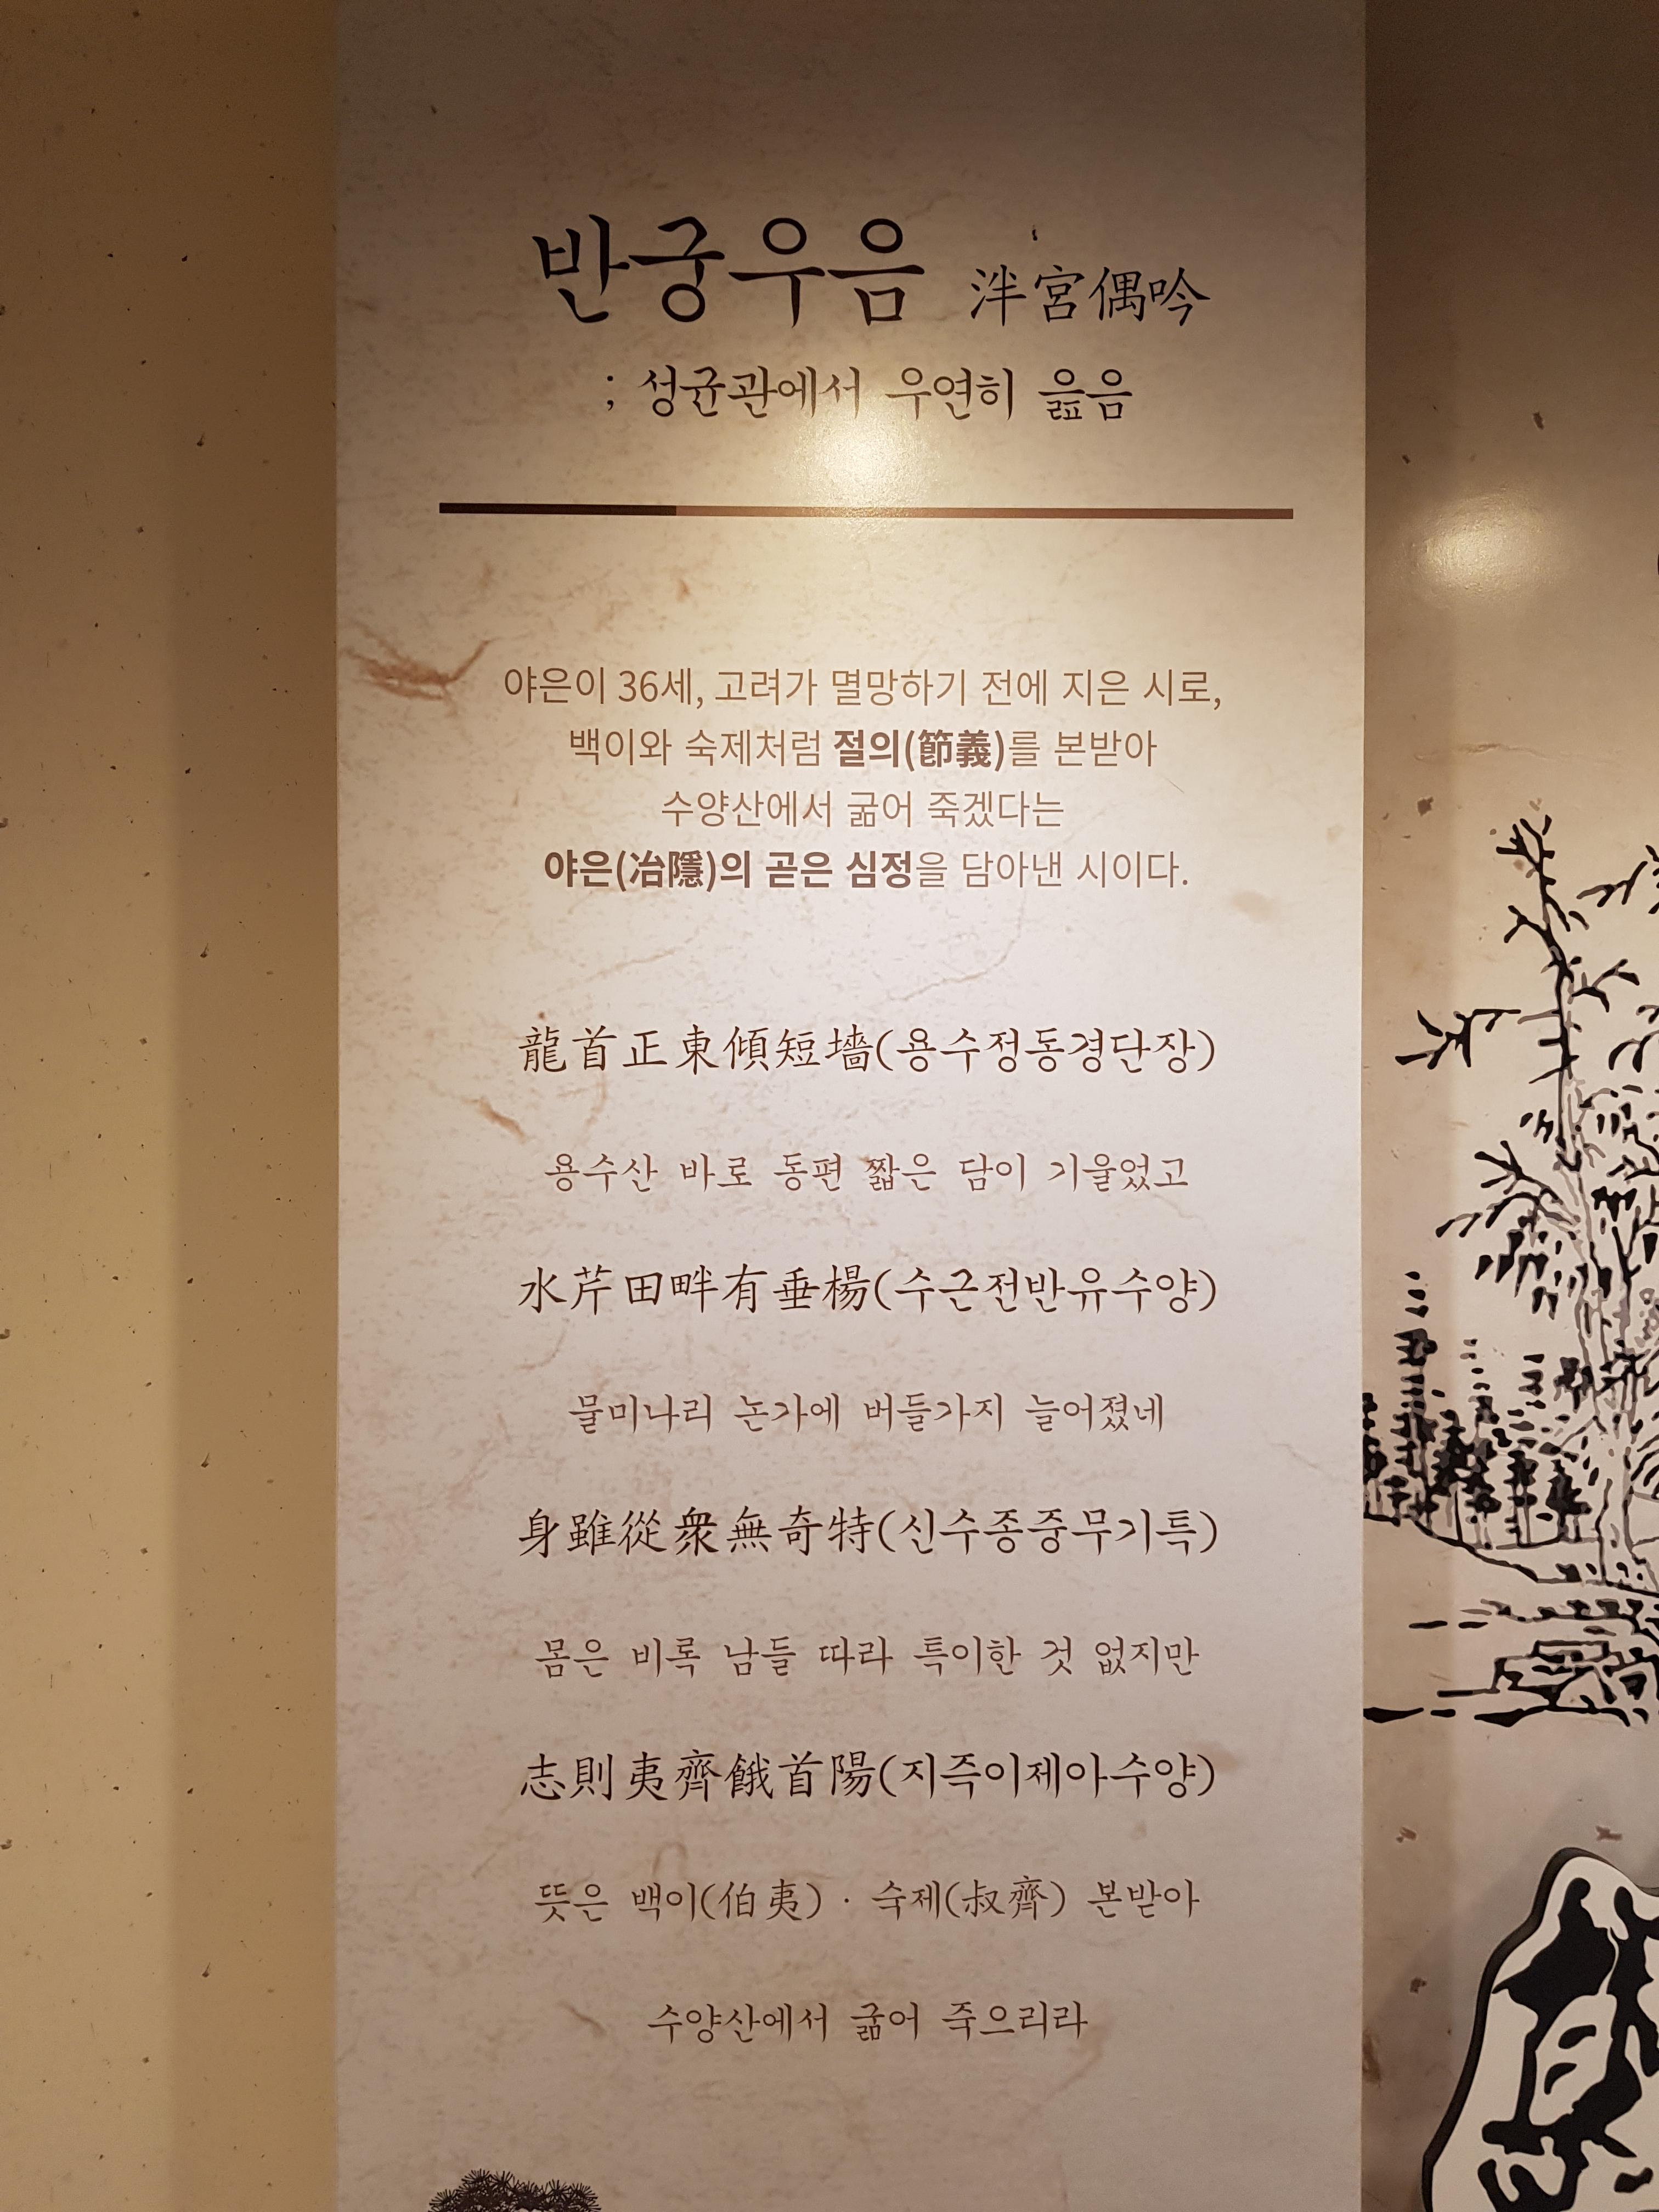 반궁우음 泮宮偶吟
; 성균관에서 우연히 읊음
야은이 36세, 고려가 멸망하기 전에 지은 시로,
백이와 숙제처럼 절의(節義)를 본받아
수양산에서 굶어 죽겠다는
야은(冶隱)의 곧은 심정을 담아낸 시이다.
龍首正東傾短墻(용수정동경단장)
용수산 바로 동편 짧은 담이 기울었고
水芹田畔有垂楊(수근전반유수양)
물미나리 논가에 버들가지 늘어졌네
身雖從衆無奇特(신수종중무기특)
몸은 비록 남들 따라 특이한 것 없지만
志則夷齊餓首陽(지즉이제아수양)
뜻은 백이(伯夷) · 숙제(叔齊) 본받아
수양산에서 굶어 죽으리라